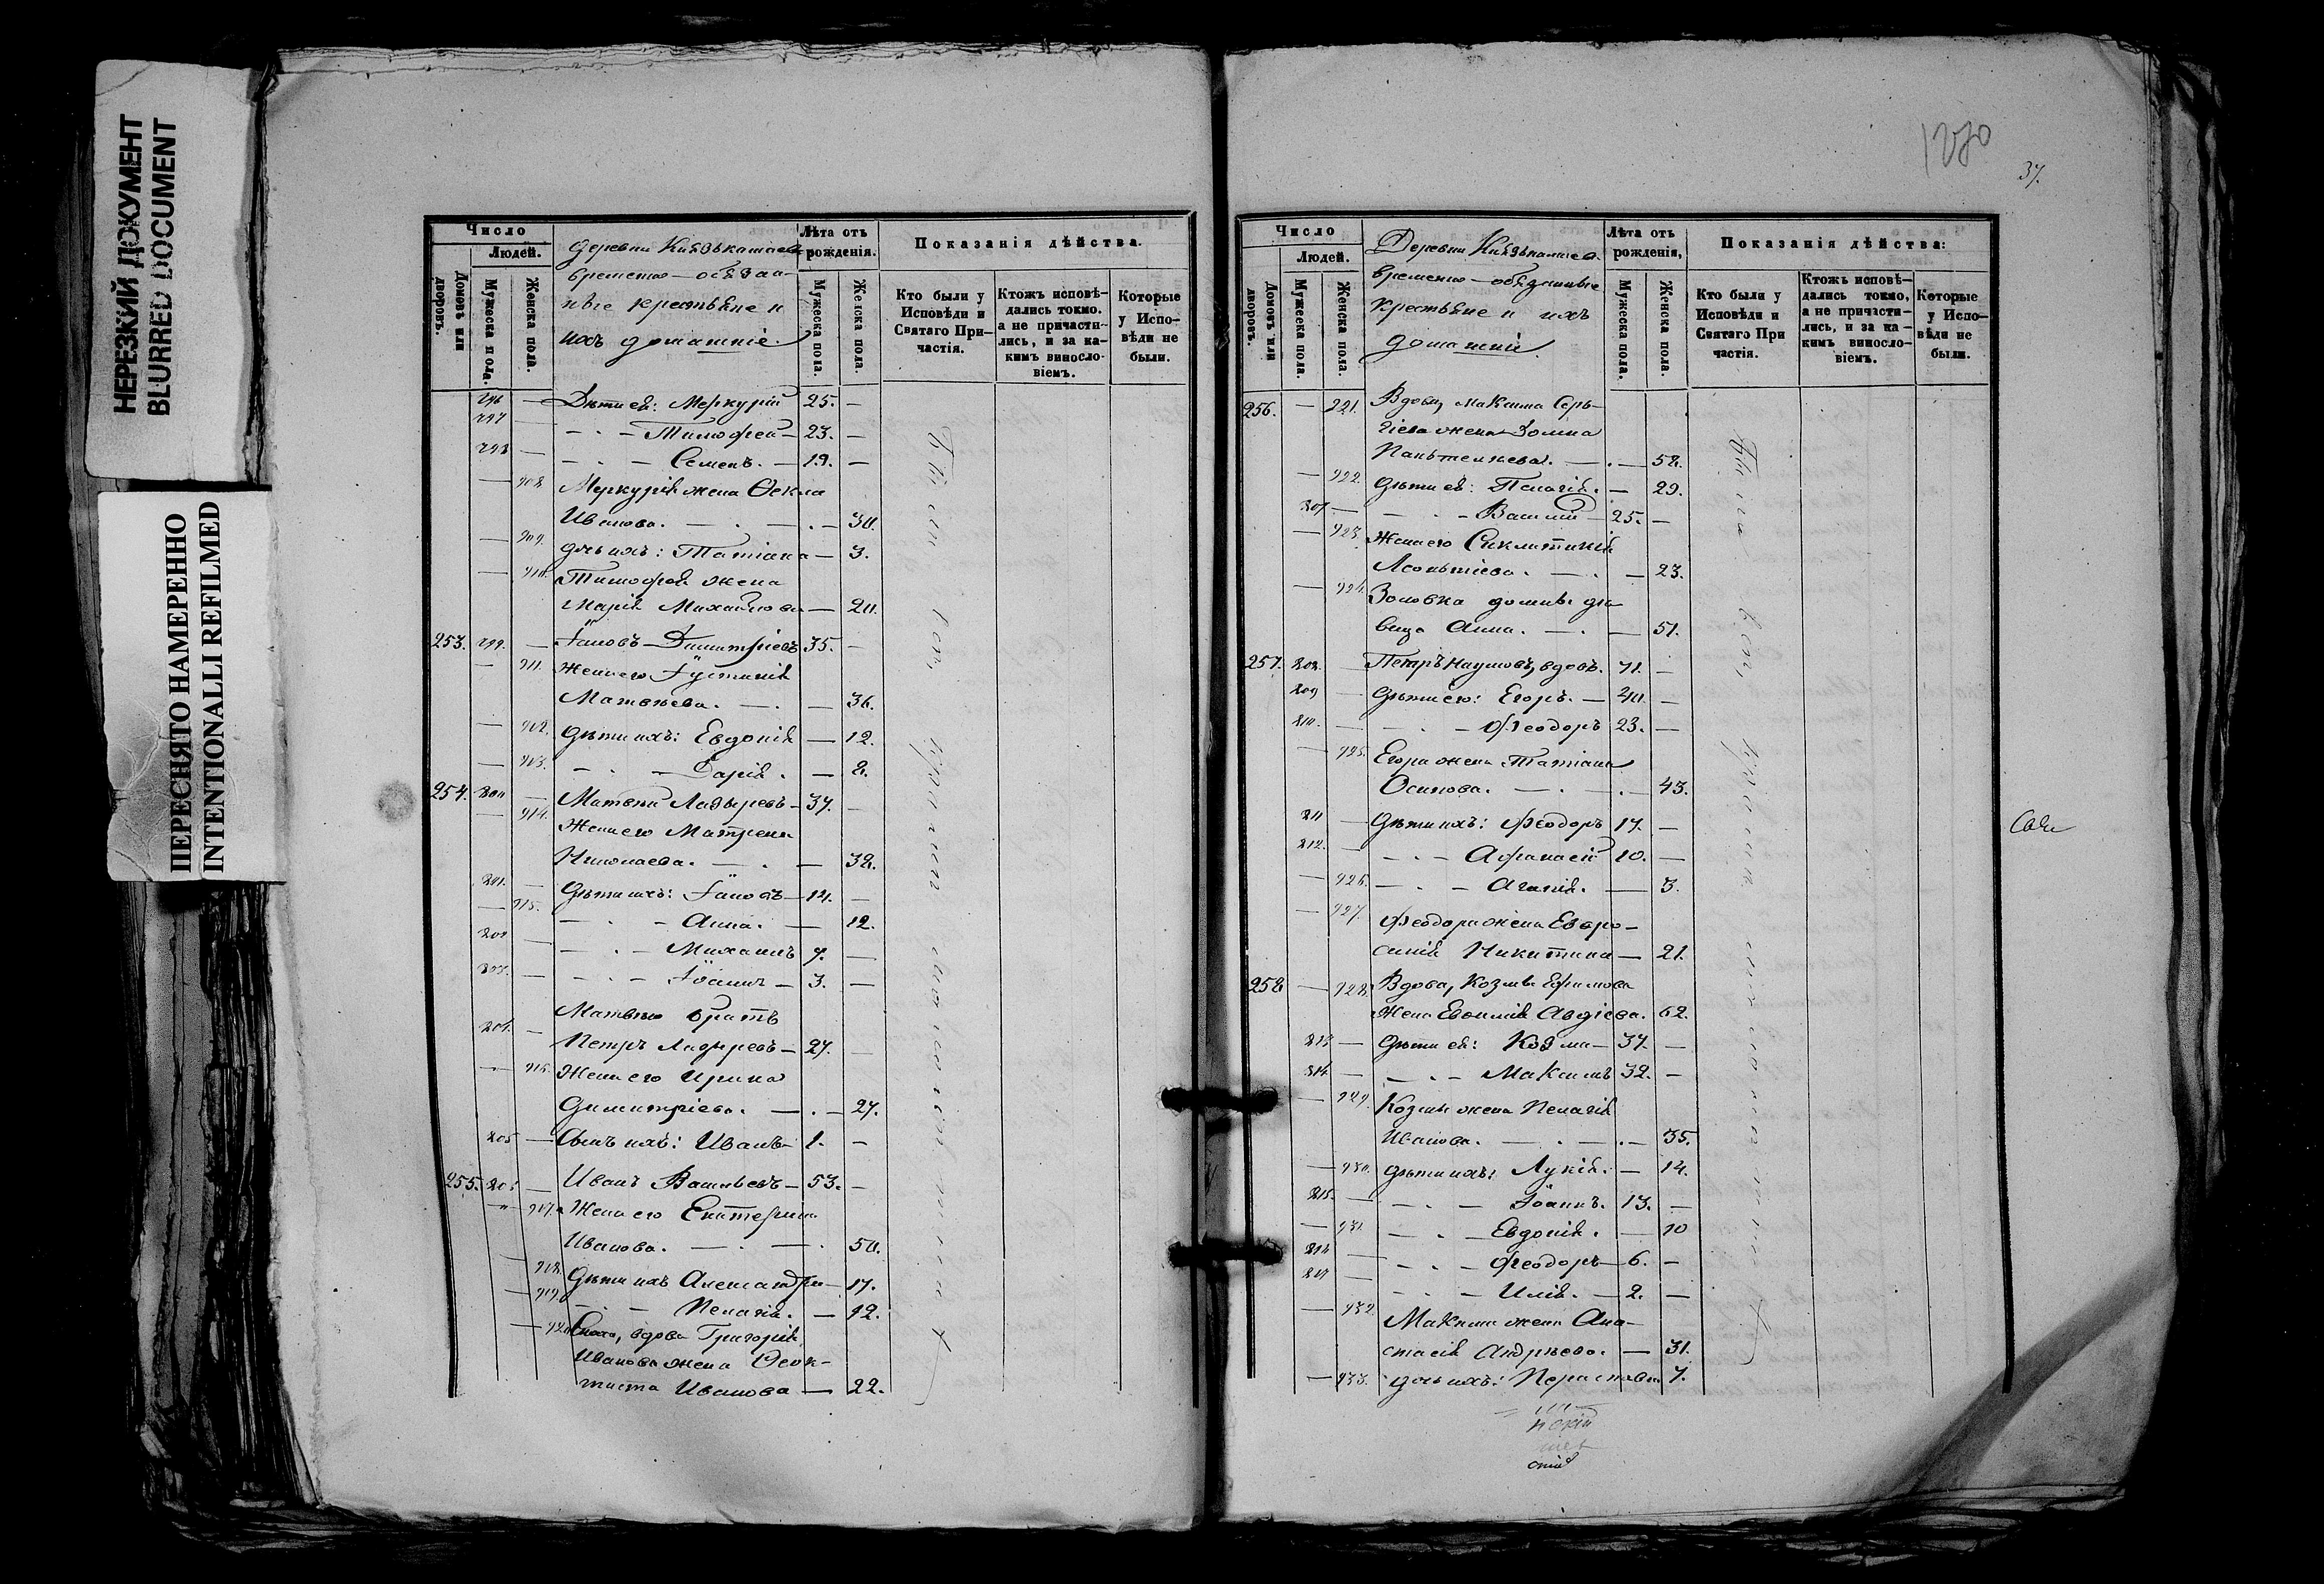 НЕРЕЗКИЙ ДОКУМЕНТ
BLURRED DOCUMENT
ПЕРЕСНЯТО НАМЕРЕННО
INTENTIONALLI REFILMED
Число
Людей.
Домовъ или дворовъ.
Мужеска пола.
Женска пола.
Деревни
временно-обязан-
ные крестьяне и
ихъ домашніе.
Лѣта отъ рожденія.
Мужеска пола.
Женска пола.
Показанія дѣйства.
Кто были у Исповѣди и Святаго При-частія.
Ктожъ исповѣ-дались токмо, а не причасти-лись, и за ка-кимъ винсло-віемъ.
Которые у Испо-вѣди не были.
Дѣти ей: Меркурій 25. —
— Тимофей — 23. —
— Семенъ. — 19. —
908 Меркурія жена Ѳекла
Иванова. — 30.
909. дочь ихъ: Татіана — 3.
910. Тимофея жена
Марія Михайлова — 20.
253. 799. — Іаковъ Димитріевъ 35. —
911. Жена его Іустинія
Матвѣева. — 36.
912. Дѣти ихъ: Евдокія — 12.
913. — Дарія. — 8.
254. 800 — Матвей Лазыревъ — 37. —
914. Жена его Матрена
Николаева. — 38.
801. — Дѣти ихъ: Іаковъ — 14. —
915. — Анна. — 12.
802 — Михаилъ 7. —
803. — Іоаннъ — 3. —
Матвѣя братъ
804. — Петръ Лазыревъ — 27. —
916. Жена его Ирина
Димитріева. — 27.
805 — Сынъ ихъ: Иванъ 1. —
255. 806 — Иванъ Васильевъ — 53. —
917. Жена его Екатерина
Иванова. — 50.
918. Дѣти ихъ Александра — 17.
919. — Пелагія. — 12.
920 Сноха, вдова Григорія
Иванова жена Ѳеок-
тиста Иванова — 22.
Были
1280
37.
Число
Людей.
Домовъ или дворовъ.
Мужеска пола.
Женска пола.
Деревни
временно-обязанные
крестьяне и ихъ
домашніе.
Лѣта отъ рожденія,
Мужеска пола.
Женска пола.
Показанія дѣйства:
Кто были у Исповѣди и Святаго При частія.
Ктожъ исповѣ-дались токмо, а не причасти-лись, и за ка-кимъ винсло-віемъ.
Которые у Испо-вѣди не были.
256. — 921. Вдова, Максима Сер-
гіева жена Домна
Пантелеева. — 58.
922. Дѣти ей: Пелагія. — 29.
807 — Василій 25. —
923. Жена его Синклитикія
Леонтіева. — 23.
924. Золовка Домны дѣ-
вица Анна. — 51.
257. 808. — Петръ Наумовъ, вдовъ. 71. —
809 — Дѣти его: Егоръ. — 40. —
810. — Ѳеодоръ 23. —
925. Егора жена Татіана
Осипова. — 43.
811 — Дѣти ихъ: Ѳеодоръ 17. —
812. — Афанасій 10. —
926. — Агапія. — 3.
927. Ѳеодора жена Евфро-
синія Никитина — 21.
258 — 928. Вдова, Козмы Ефимова
жена Евфимія Авдіева. 62.
813 — Дѣти ей: Козма — 37. —
814 — Максимъ 32. —
929. Козмы жена Пелагія
Иванова. — 35.
930. Дѣти ихъ: Лукія. — 14.
815. — Іоаннъ. 13. —
931 — Евдокія. — 10
816 — Ѳеодоръ — 6. —
817 — Илія. — 2. —
932 Максима жена Ана-
стасія Андреева. — 31.
933. дочь ихъ: Параскева 7.
Были